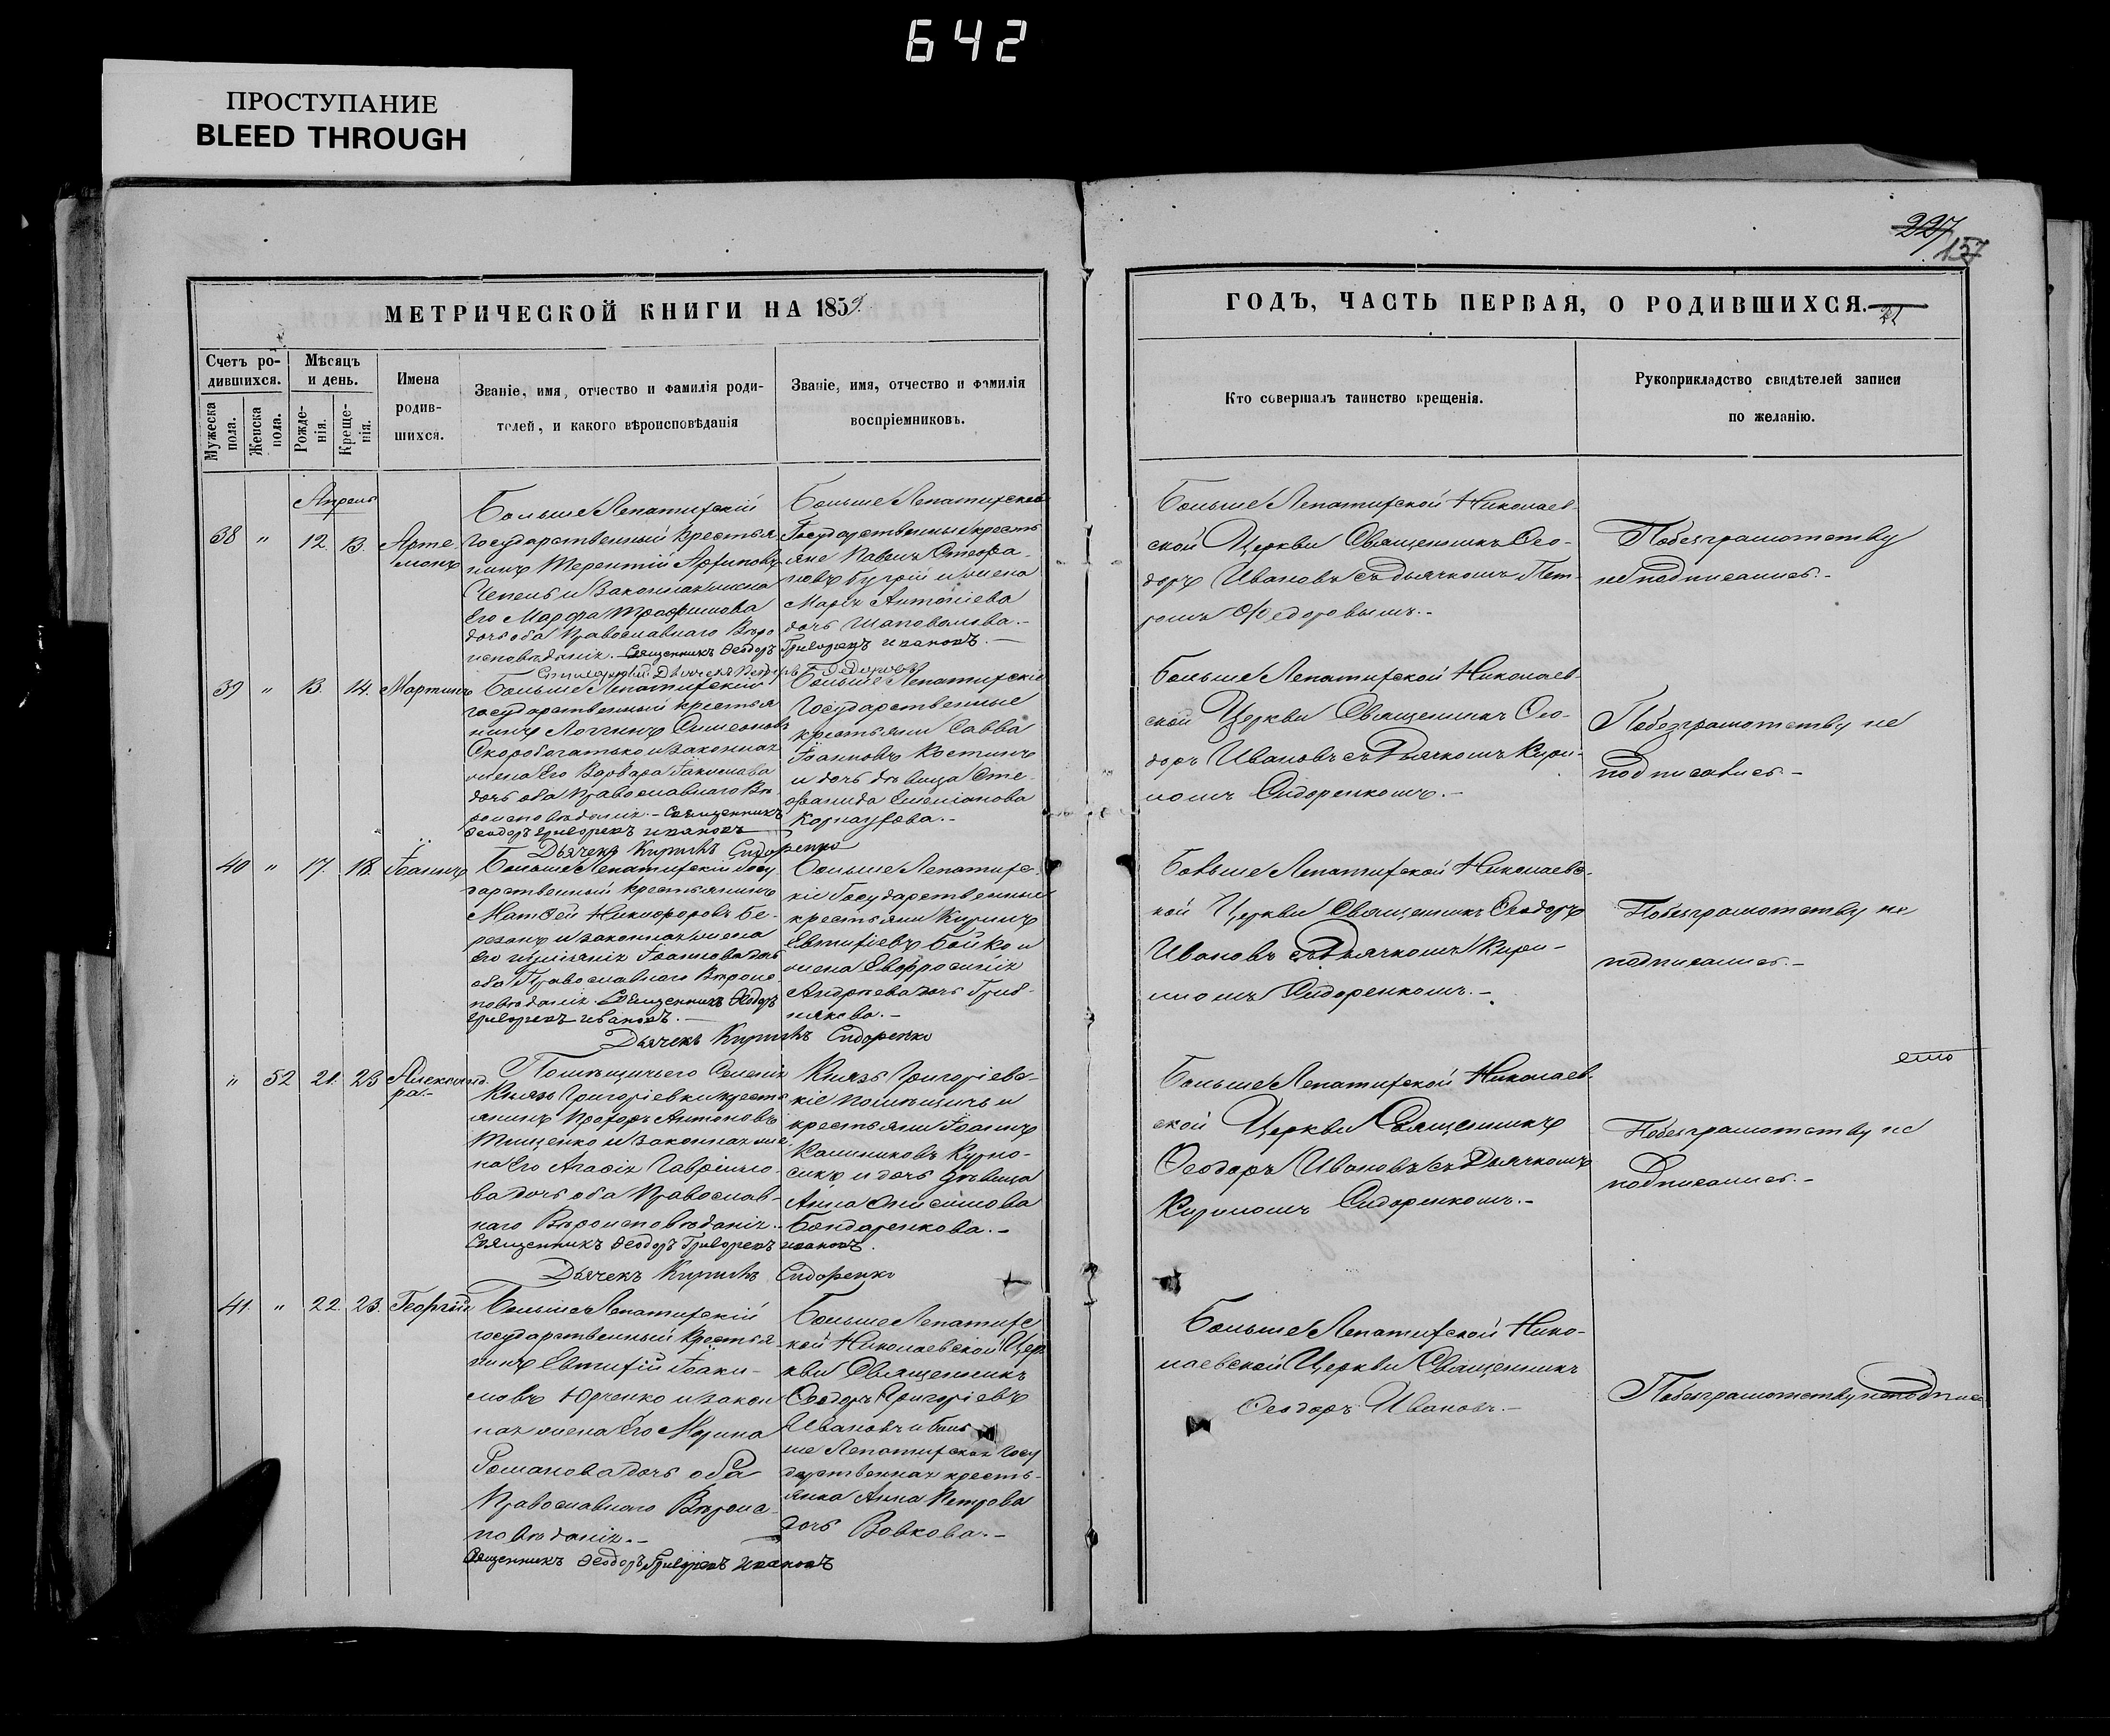 642
ПРОСТУПАНИЕ
BLEED THROUGH
227
157
МЕТРИЧЕСКОЙ КНИГИ НА 1859.
ГОДЪ, ЧАСТЬ ПЕРВАЯ, О РОДИВШИХСЯ.
Счетъ ро-
дившихся.
Мужеска пола.
Женска пола.
Мѣсяцъ
и день.
Рожде-
нія.
Креще-
нія.
Имена
родив-
шихся.
Званіе, имя, отчество и фамилія роди-
телей, и какого вѣроисповѣданія
Званіе, имя, отчество и фамилія
воспріемниковъ.
Кто совершалъ таинство крещенія.
Рукоприкладство свидѣтелей записи
по желанію.
Апрель
38 " 12. 13. Арте-
монъ
БольшеЛепатихскій
Государственный крестья
нинъ Терентій Архиповъ
Чепель и Законная жена
Его Марфа Трофимова
дочь оба Православнаго Вѣро
исповѣданія. Священникъ Ѳеодоръ Григорьевъ Ивановъ.
БольшеЛепатихскіе
Государственные кресть
яне Павелъ Стефа-
новъ и жена
Марія Антоніева
дочь Шаповалова.-
БольшеЛепатихской Николаев-
ской Церкви Священникъ Ѳео-
доръ Ивановъ съ дьячкомъ Пет-
ромъ Ѳедоровымъ.-
Побезграмотству
неподписались.-
39 " 13. 14. Мартинъ
БольшеЛепатихский
государственный крестья
нинъ Логгинъ Симеоновъ
Скоробогатько и законная
жена Его Варвара Іаковлева
дочь оба Православнаго Вѣ
роисповѣданія.- Священникъ
Ѳеодоръ Григорьевъ Ивановъ
Дьячекъ Кирилъ Сидоренко
БольшеЛепатихскіе
Государственные
крестьяни Савва
Іоанновъ Костинъ
и дочь дѣвица Сте-
фанида Емеліанова
Корнаухова.-
БольшеЛепатихской Николаев-
ской Церкви Священникъ Ѳео-
доръ Ивановъ съ Дьячкомъ Кири-
ломъ Сидоренкомъ.-
Побезграмотству не
подписались.-
40 " 17. 18. Іоаннъ
БольшеЛепатихскій Госу
дарственный крестьянинъ
Матѳей Никифоровъ Бе-
резанъ и законная жена
Его Іоаннова дочь
оба Православнаго Вѣроис
повѣданія. Священникъ Ѳеодоръ
Григорьевъ Ивановъ.-
Дьячекъ Кирилъ Сидоренко
БольшеЛепатихс-
кіе Государственные
крестьяни Кирилъ
Евтихіевъ Бойко и
жена Евфросинія
Андреева дочь Гриб-
някова.-
БольшеЛепатихской Николаевс-
кой Церкви Священникъ Ѳеодоръ
Ивановъ съ Дьячкомъ Кири-
ломъ Сидоренкомъ.-
Побезграмотству не
подписались.-
" 52 21. 23 Александ-
ра.-
Помѣщичьего Селенія
Князь Григоріевки кресть
янинъ Прохоръ Антоновъ
Тищенко и Законная же
на Его Агафія Гавріило-
ва дочь оба Православ-
наго Вѣроисповѣданія.-
Священникъ Ѳеодоръ Григорьевъ Ивановъ.
Дьячекъ Кирилъ Сидоренко
Князь Григоріевс-
кіе помѣщичьи
крестьяни Іоаннъ
Калиниковъ Курно-
сикъ и дочь дѣвица
Анна Онисимова
Бондаренкова.-
БольшеЛепатихской Николаев-
ской Церкви Священникъ
Ѳеодоръ Ивановъ съ Дьячкомъ
Кириломъ Сидоренкомъ.-
Побезграмотству не
подписались.-
41. " 22. 23. Георгій
БольшеЛепатихскій
государственный Крестья
нинъ Евтихій Іоаки-
мовъ Юрченко и закон
ная жена Его Марина
Романова дочь оба
Православнаго Вѣроис-
повѣданія.-
Священникъ Ѳеодоръ Григорьевъ Ивановъ
БольшеЛепатихс
кой Николаевской Цер
кви Священникъ
Ѳеодоръ Григоріевъ
Ивановъ и боль
ше Лепатихская Госу
дарственная кресть-
янка Анна Петрова
дочь Вовкова.-
БольшеЛепатихской Нико-
лаевской Церкви Священникъ
Ѳеодоръ Ивановъ.-
Побезграмотству неподписа